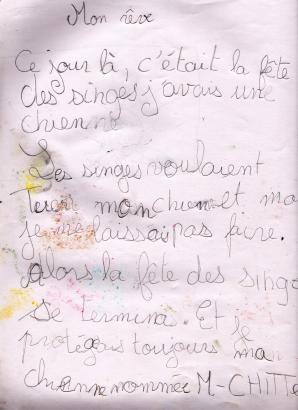 Mon rêve
Ce jour là, c'était la fête
des singes j'avais une
chienne
Les singes voulaient
tuer mon chien et ma
je ne laissai pas faire.
Alors la fête des singe
se termina. Et je
protégeais toujours ma
chienne nommée M-CHITT